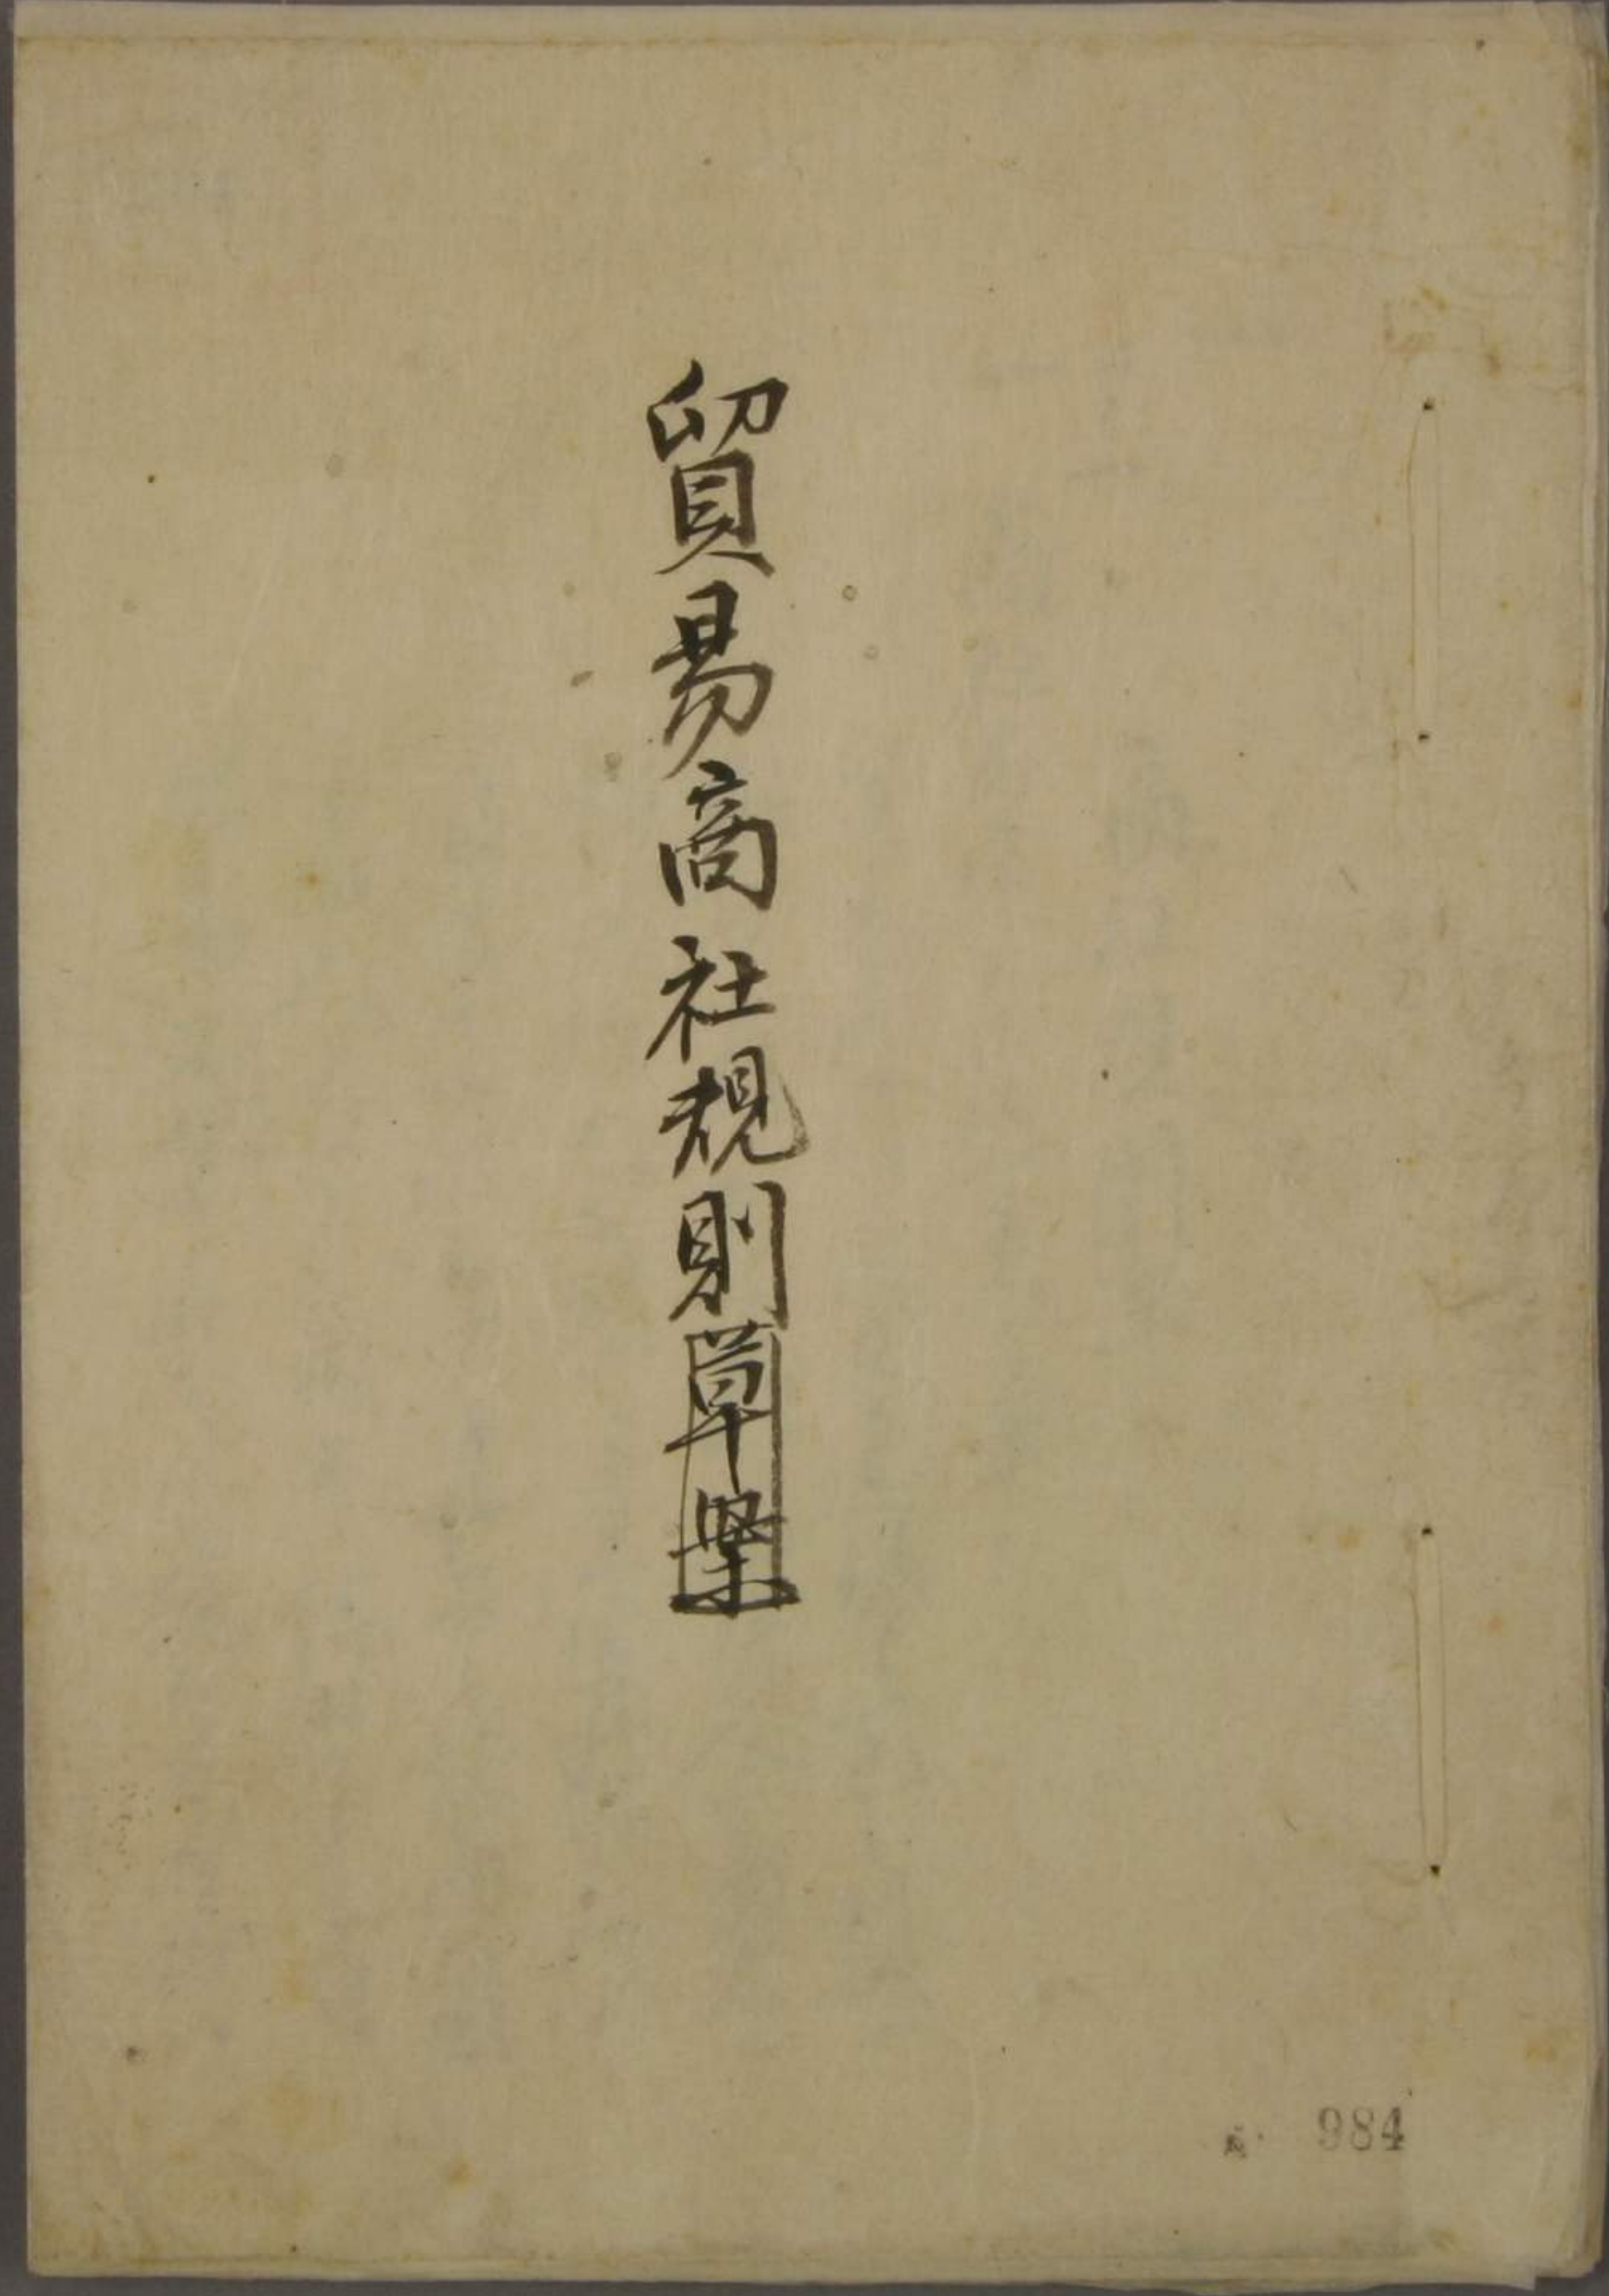 貿易商社規則草案
984